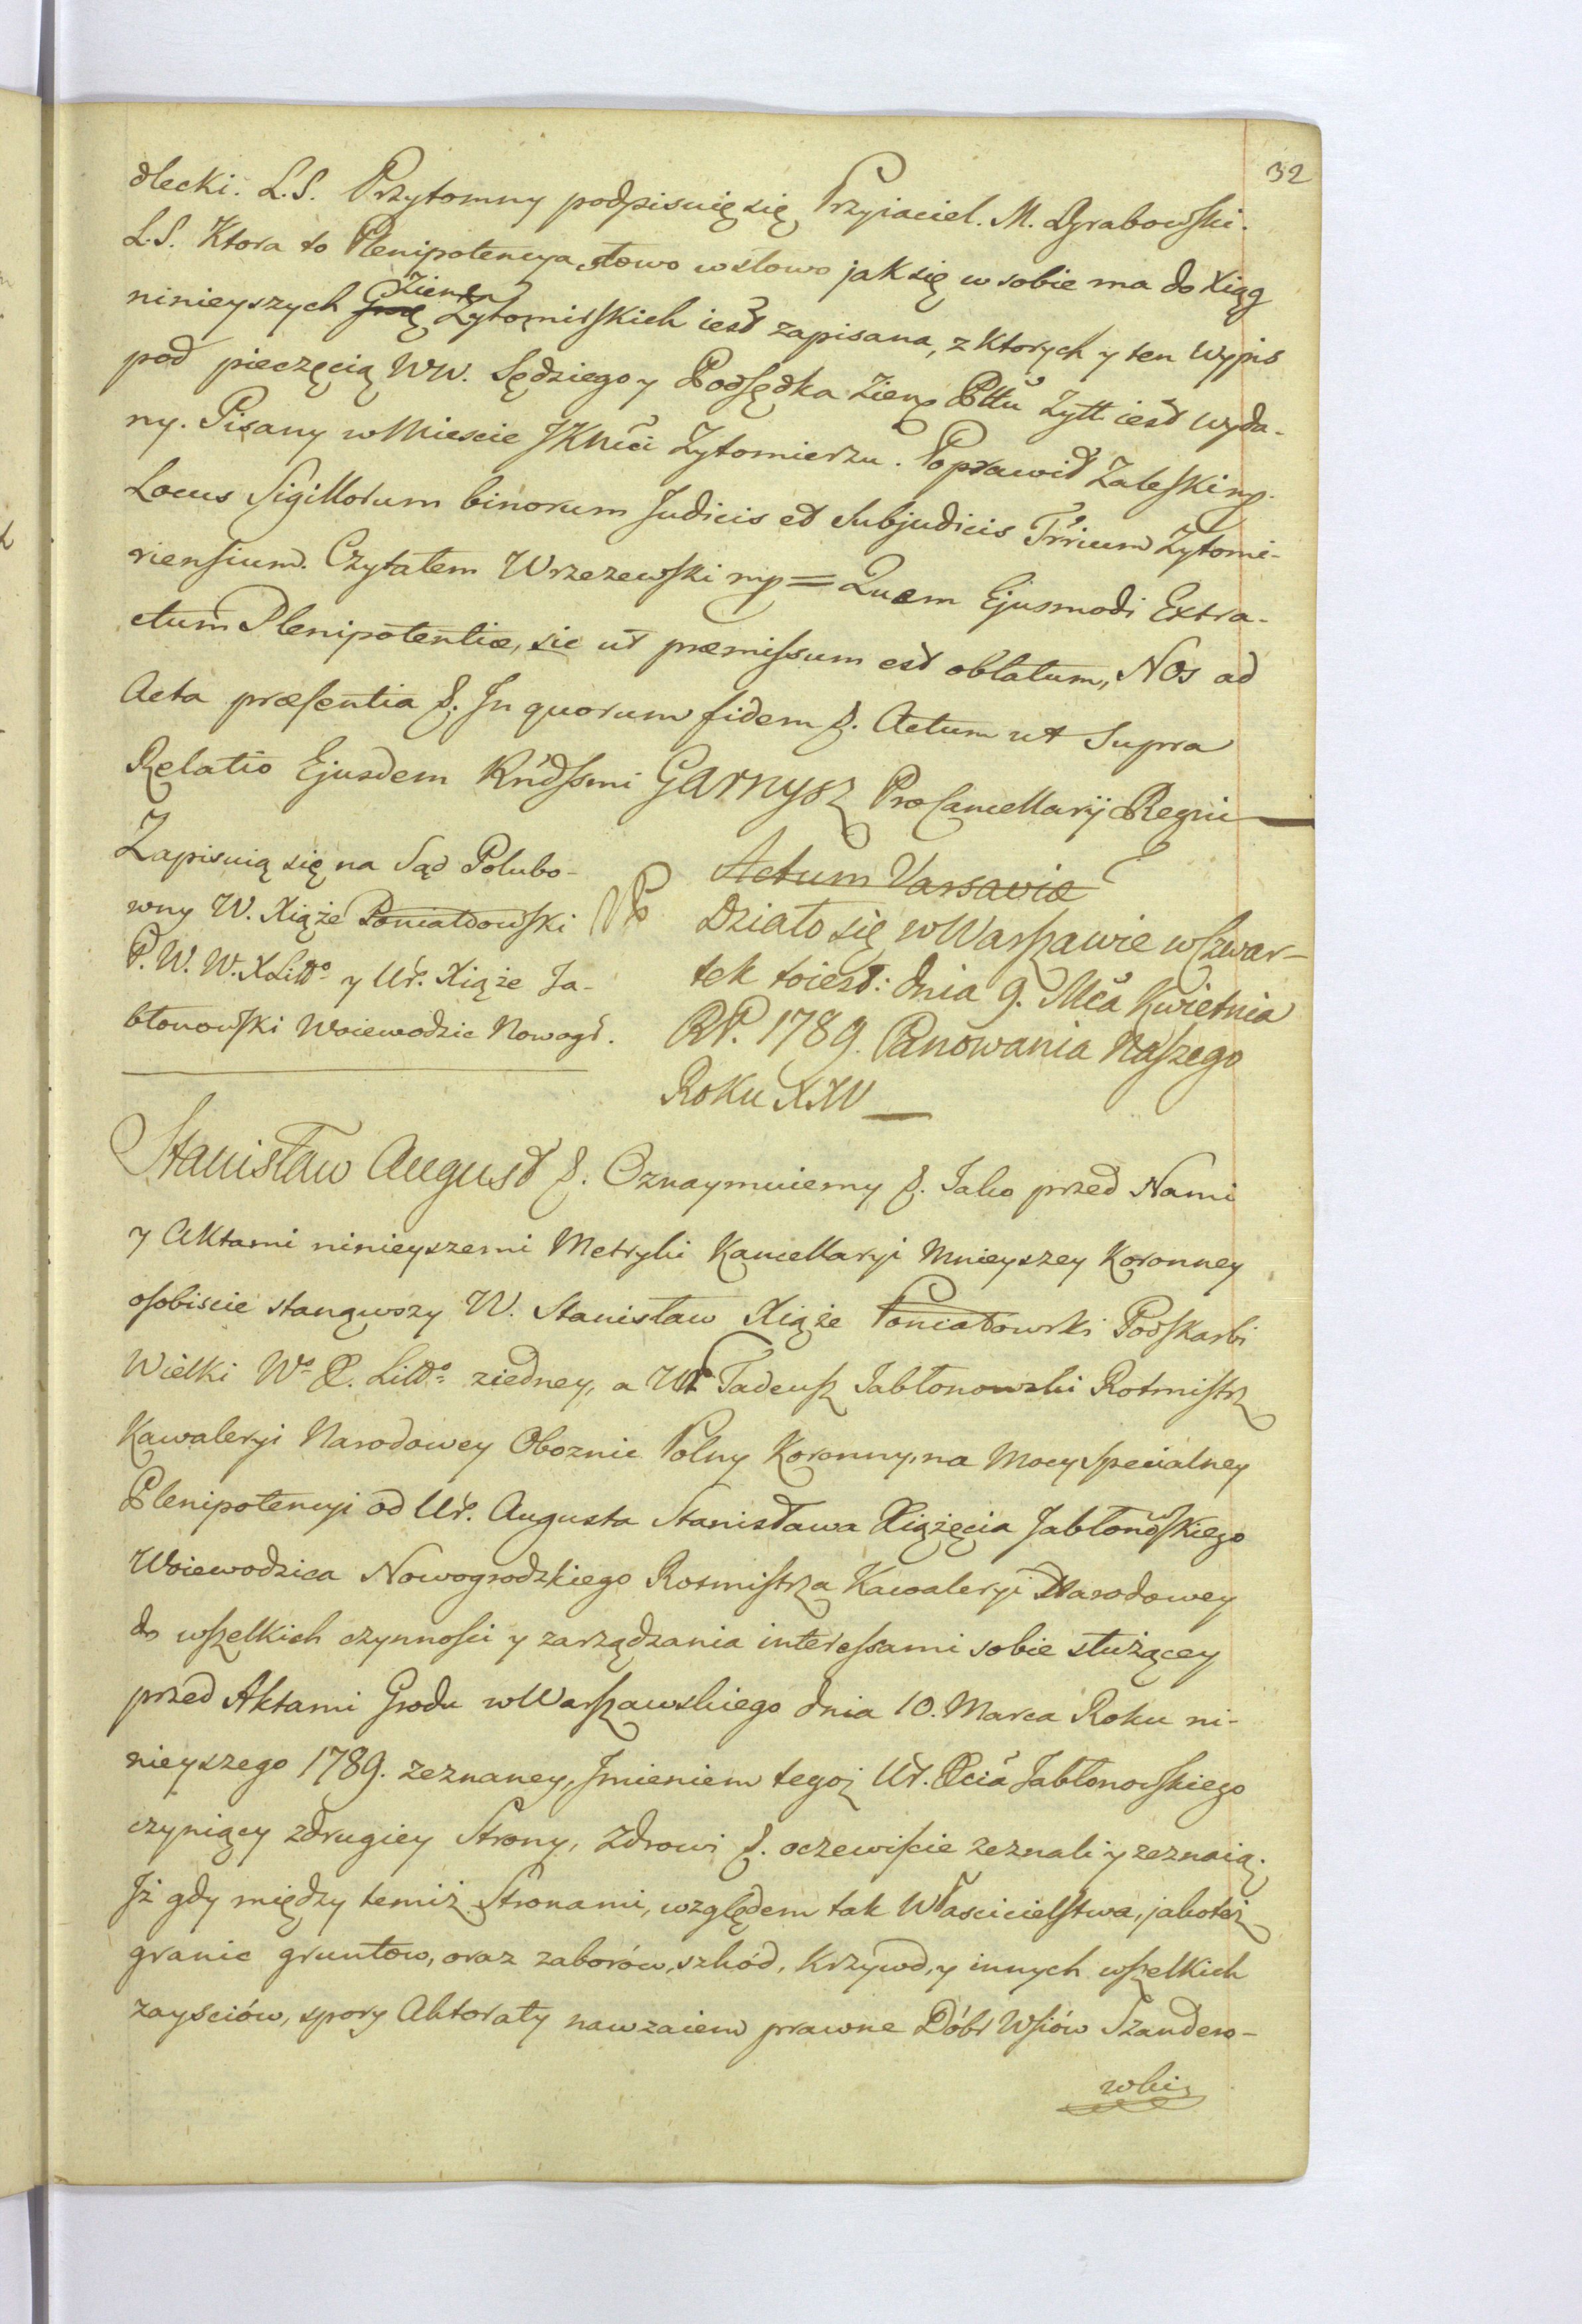 32
dlecki. L.S. Przytomny podpisuię się Przyiaciel. M. Grabowski.
L.S. Ktora to Plenipotencya słowo wsłowo jak się w sobie ma do Xiąg
ninieyszych Grod Ziem Zytomirskich iest zapisana, z Ktorych y ten Wypis
pod pieczęcią WW. Sędziego y Podsędka Ziem Pttu Zytt. iest wyda-
ny. Pisany w Miescie JKMci Zytomierzu. Poprawił Zaleski mp.
Locus Sigillorum binorum Judicis et Subjudicis Trrium Zytomi-
riensium. Czytałem Wrzezewski mp = Quem Ejusmodi Extra-
ctum Plenipotentiæ, sic ut præmissum est oblatum, Nos ad
Acta præsentia &. In quorum fidem &. Actum ut Supra
Relatio Ejusdem Rndssmi Garnysz ProCancellarij Regni
Zapisuią się na Sąd Polubo-
wny W. Xiąże Poniatowski
P. W. W. X Litto y Ur. Xiąże Ja-
błonowski Woiewodzic Nowogr.
Actum Varsaviæ
Działo się w Warszawie w Czwar-
tek toiest: dnia 9. Mca Kwietnia
RP. 1789. Panowania Naszego
Roku XXV
Stanisław August &. Oznaymuiemy &. Jako przed Nami
y Aktami ninieyszemi Metryki Kancellaryi Mnieyszey Koronney
osobiscie stanąwszy W. Stanisław Xiąże Poniatowski Podskarbi
Wielki Wo X. Litto ziedney, a Ur Tadeusz Jabłonowski Rotmistrz
Kawaleryi Narodowey Oboznic Polny Koronny, na Mocy specialney
Plenipotencyi od Ur. Augusta Stanisława Xiążęcia Jabłonowskiego
Woiewodzica Nowogrodzkiego Rotmistrza Kawaleryi Narodowey
do wszelkich czynnosci y zarządzania interessami sobie służącey
przed Aktami Grodu wWarszawskiego dnia 10. Marca Roku ni-
nieyszego 1789. zeznaney, Imieniem tegoż Ur. Xcia Jabłonowskiego
czyniący zdrugiey Strony, Zdrowi &. oczewiscie zeznali y zeznaią.
Iż gdy między temiż Stronami, względem tak Własciciel­stwa, jakoteż
granic gruntow, oraz zaborów, szkód, Krzywd, y innych wszelkich
zaysciów, spory Aktoraty nawzaiem prawne Dóbr Wsiów Szandero-
wki